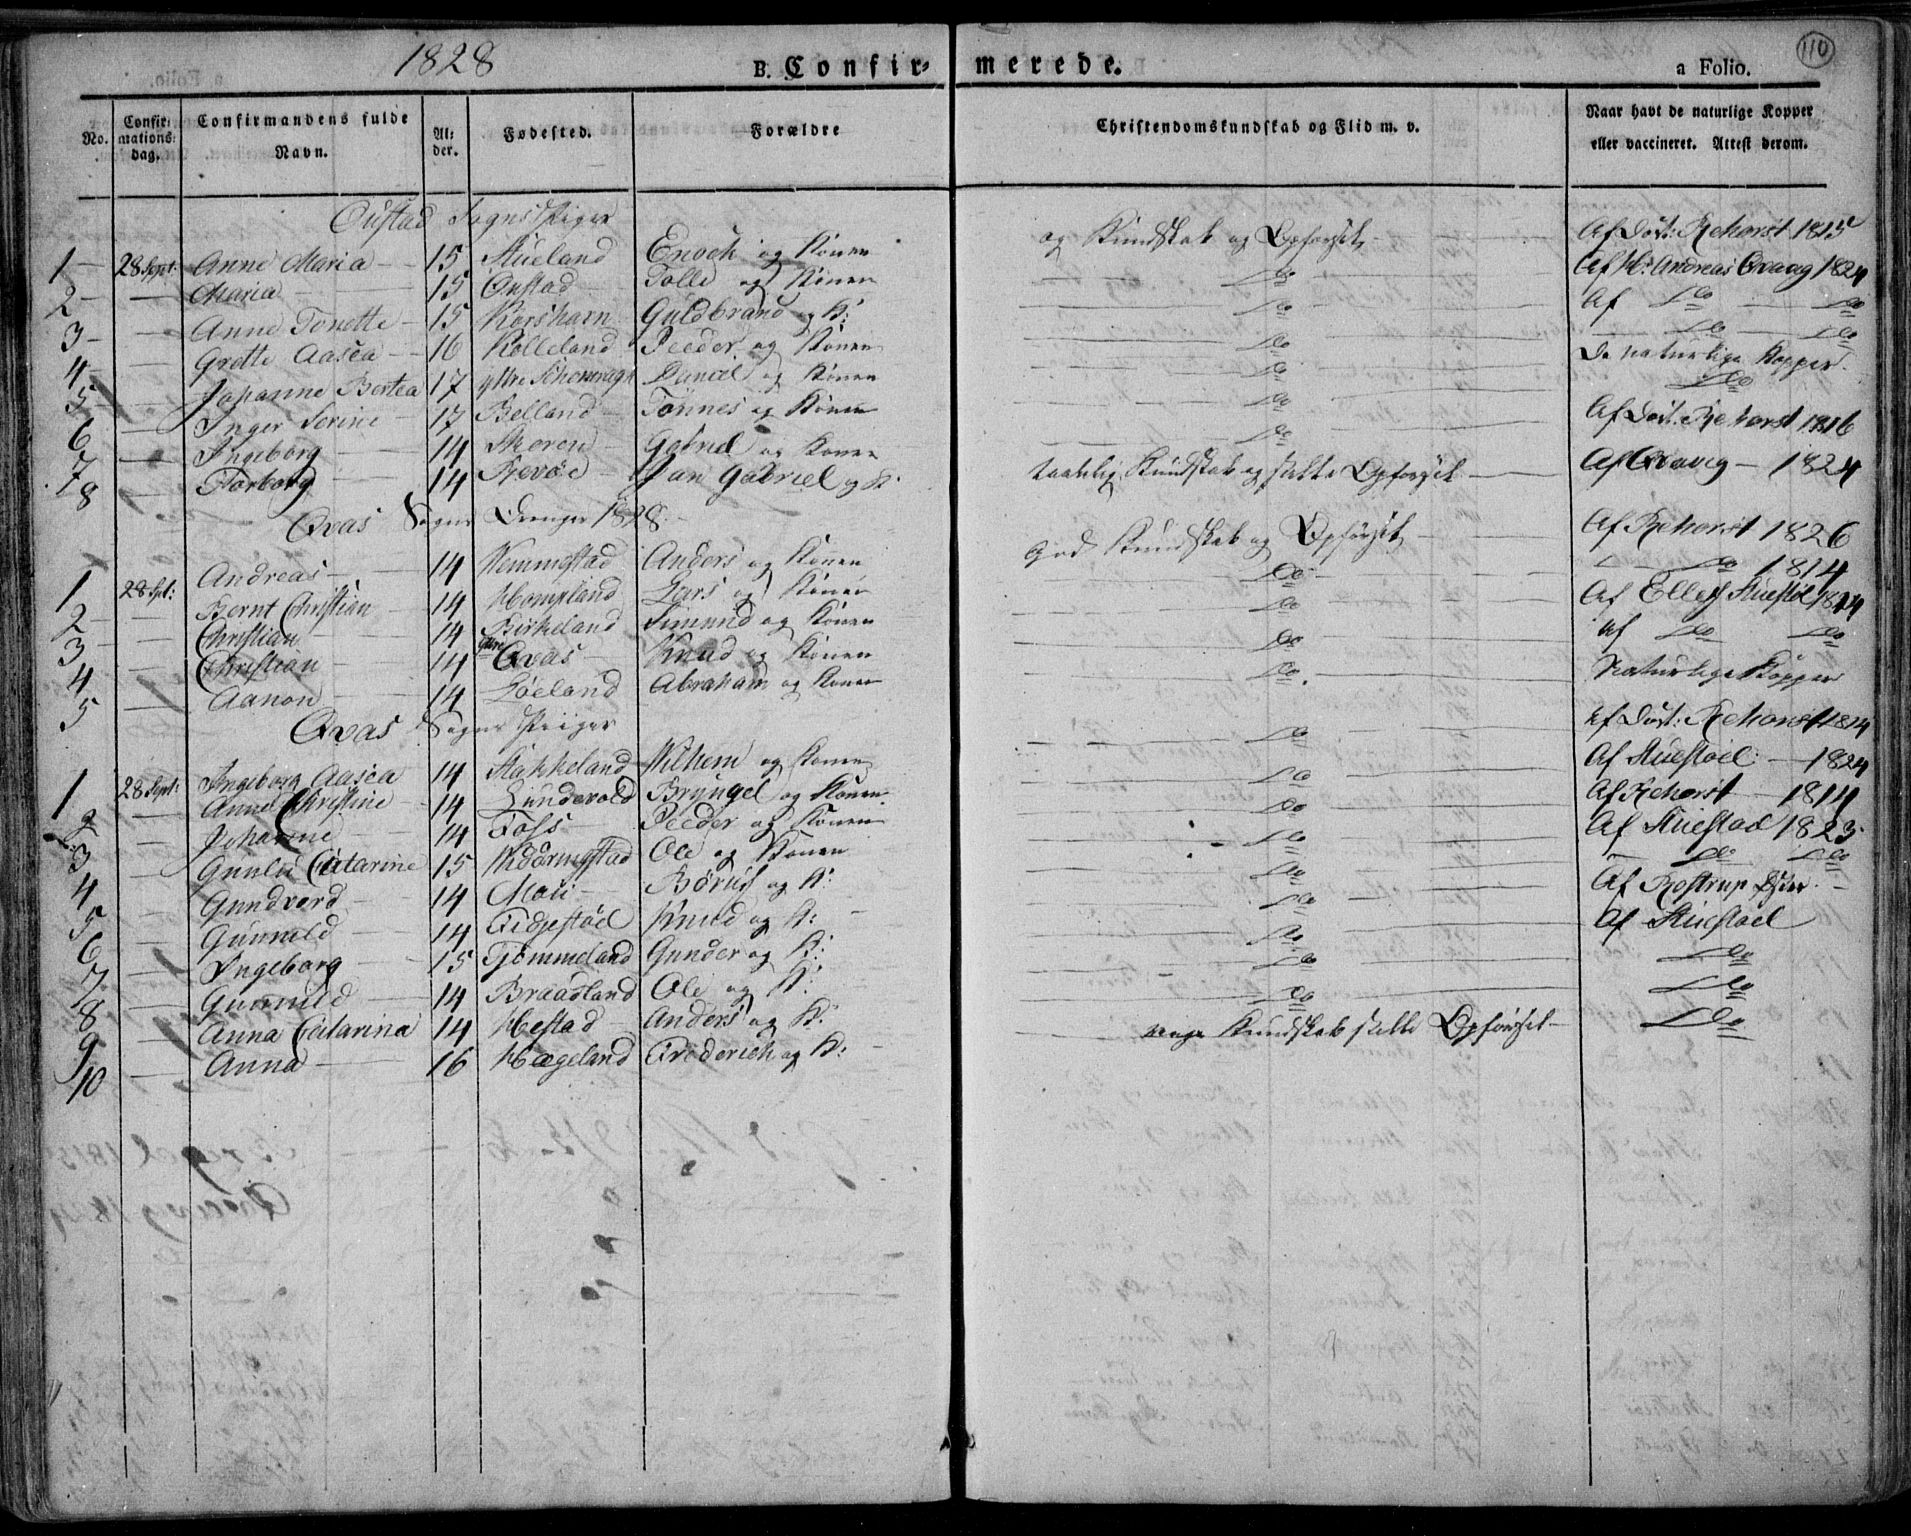 1828 B. Confir- merede. a Folio. 110
No. Confir- mations- dag. Confirmandens fulde Navn. Al- der. Fødested. Forældre Christendomskundskab og Flid m. v. Naar havt de naturlige Kopper eller vaccineret. Attest derom.
Oustad Sogns Piger
1 28 Sept: Anne Maria 15 Stueland Enoch og Konen og Kundskab og Opførsel Af Doct: Rehorst 1815
2 Maria 15 Oustad Tolle og Konen Do Af Hr. Andreas Qvavig 1824
3 Anne Tonette 15 Korshavn Guldbrand og K: Do Af Do Do
4 Grette Aasea 16 Kolleland Peeder og Konen Do Do Do
5 Johanne Bertea 17 yttre Daniel og Konen Do De naturlige Kopper
6 Inger Serine 17 Belland Tönnes og Konen Do Do
7 Ingeborg 14 Skoren Gabriel og Konen Do Af Doct: Rehorst 1816
8 Torborg 14 Revöe Jan Gabriel og K. taalelig Kundskab og Opførsel Af Qvavig 1824
Qvas Sogns Drenge 1828.
1 28 Spt: Andreas 14 Vemmestad Anders og Konen God Kundskab og Opførsel Af Rehorst 1826
2 Bernt Christian 14 Hompland Lars og Konen Do Do 1814
3 Christian 14 Birkeland Simund og Konen Do Af Ellef Stuestöl 1824
4 Christian 14 Qvas Knud og Konen Do Af Do Do
5 Aanon 14 Löeland Abraham og Konen Do. Naturlige Kopper
Qvas Sogns Piiger
1 28 Sept: Ingeborg Aasea 14 Stakkeland Vilhem og Konen Do Af Doct: Rehorst 1814
2 Anne Christine 14 Lindevold Bryngel og Konen Do Af Stuestoel: 1824
3 Johanne 14 Foss Peeder og Konen Do Af Rehorst 1814
4 Gunlu Catarine 15 Ole og Konen Do Af Stuestad 1823
5 Gundvord 14 Moii Börud og K: Do Do Do
6 Gunnild 14 Fidjestöel Knud og K: Do Af Restrup
7 Ingeborg 15 Tjömmeland Gunder og K: Do Af Stuestoel
8 Gunnild 14 Braadland Ole og K: Do Do
9 Anna Catarina 14 Hestad Anders og K: Do Do
10 Anna 16 Hægeland Frederich og K: Kundskab Opførsel Do